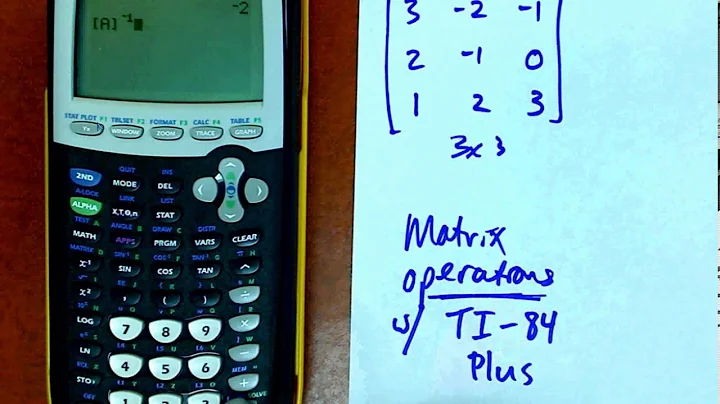 -2
[A]⁻¹
STAT PLOT F1 TBLSET F2 FORMAT F3 CALC F4 TABLE F5
Y= WINDOW ZOOM TRACE GRAPH
QUIT INS
2ND MODE DEL
A-LOCK LINK LIST
ALPHA X,T,θ,n STAT
TEST A ANGLE B DRAW C DISTR
MATH APPS PRGM VARS CLEAR
MATRIX D SIN⁻¹ E COS⁻¹ F TAN⁻¹ G π H
x⁻¹ SIN COS TAN ^
x² , ( ) ÷
LOG 7 8 9 ×
LN 4 5 6 −
MEM
STO› 1 2 3 +
OFF SOLVE
3 -2 -1
2 -1 0
1 2 3
3x3
Matrix
operations
w/ TI-84
Plus